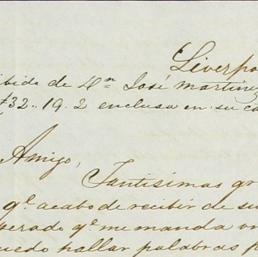 Liverpo
ibido de Dn José Martinez
£32..19.2 enclusa en su ca
Amigo,
Tantisimas gr
qe acabo de recibir de su
perado qe me manda un
uedo hallar palabras p